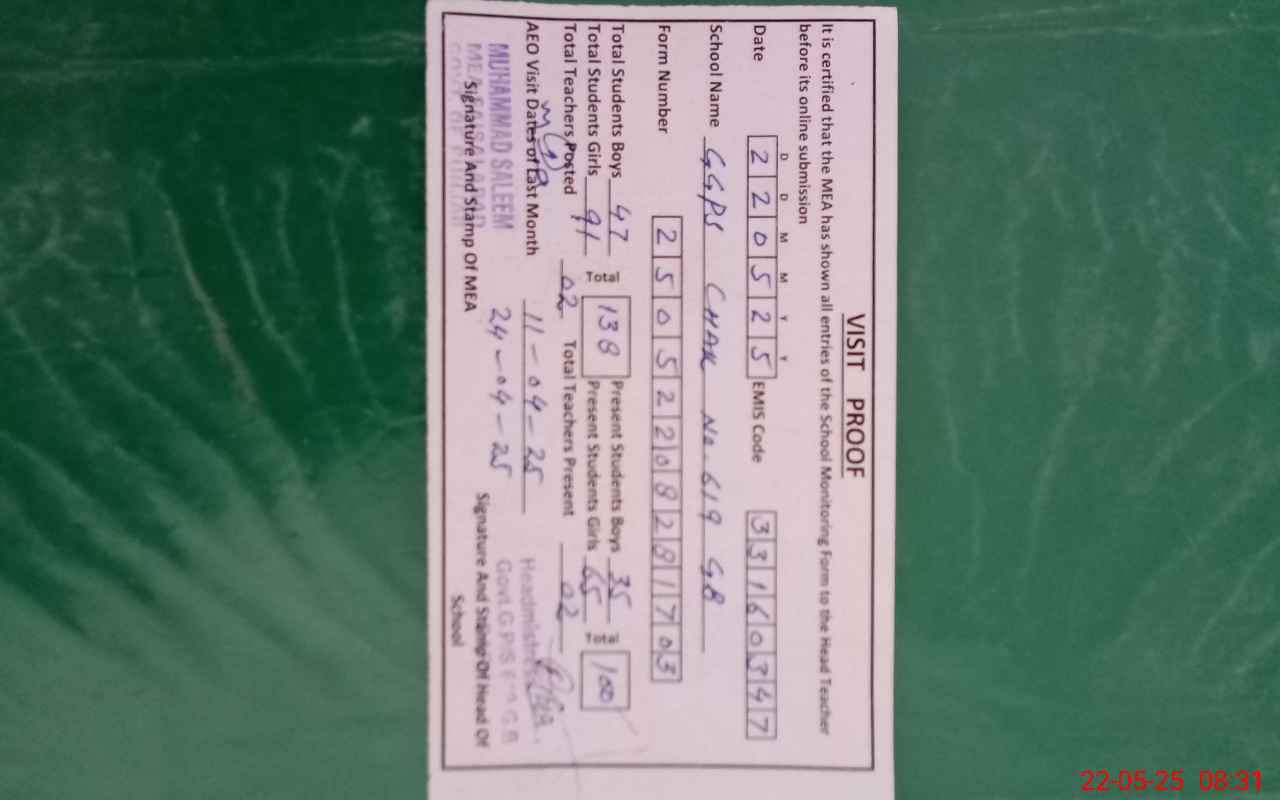 VISIT PROOF
It is certified that the MEA has shown all entries of the School Monitoring Form to the Head Teacher
before its online submission
D D M M Y Y
Date 2 2 0 5 2 5 EMIS Code 3 3 1 6 0 3 4 7
School Name GGPS CHAK No. 619 GB
Form Number 2 5 0 5 2 2 0 8 2 8 1 7 0 3
Total Students Boys 47 Total 138 Present Students Boys 35 Total 100
Total Students Girls 91 Present Students Girls 65
Total Teachers Posted 02 Total Teachers Present 02
AEO Visit Dates of Last Month 11-04-25
24-04-25
MUHAMMAD SALEEM
MEA FAISALABAD
Signature And Stamp Of MEA
Headmistress
Govt. G.P/S
Signature And Stamp Of Head Of
School
22-05-25 08:31